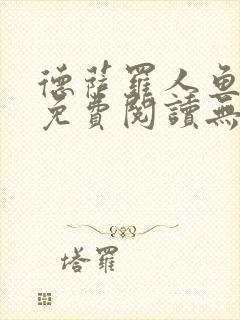 德薩羅人魚
免費閱讀無
塔羅